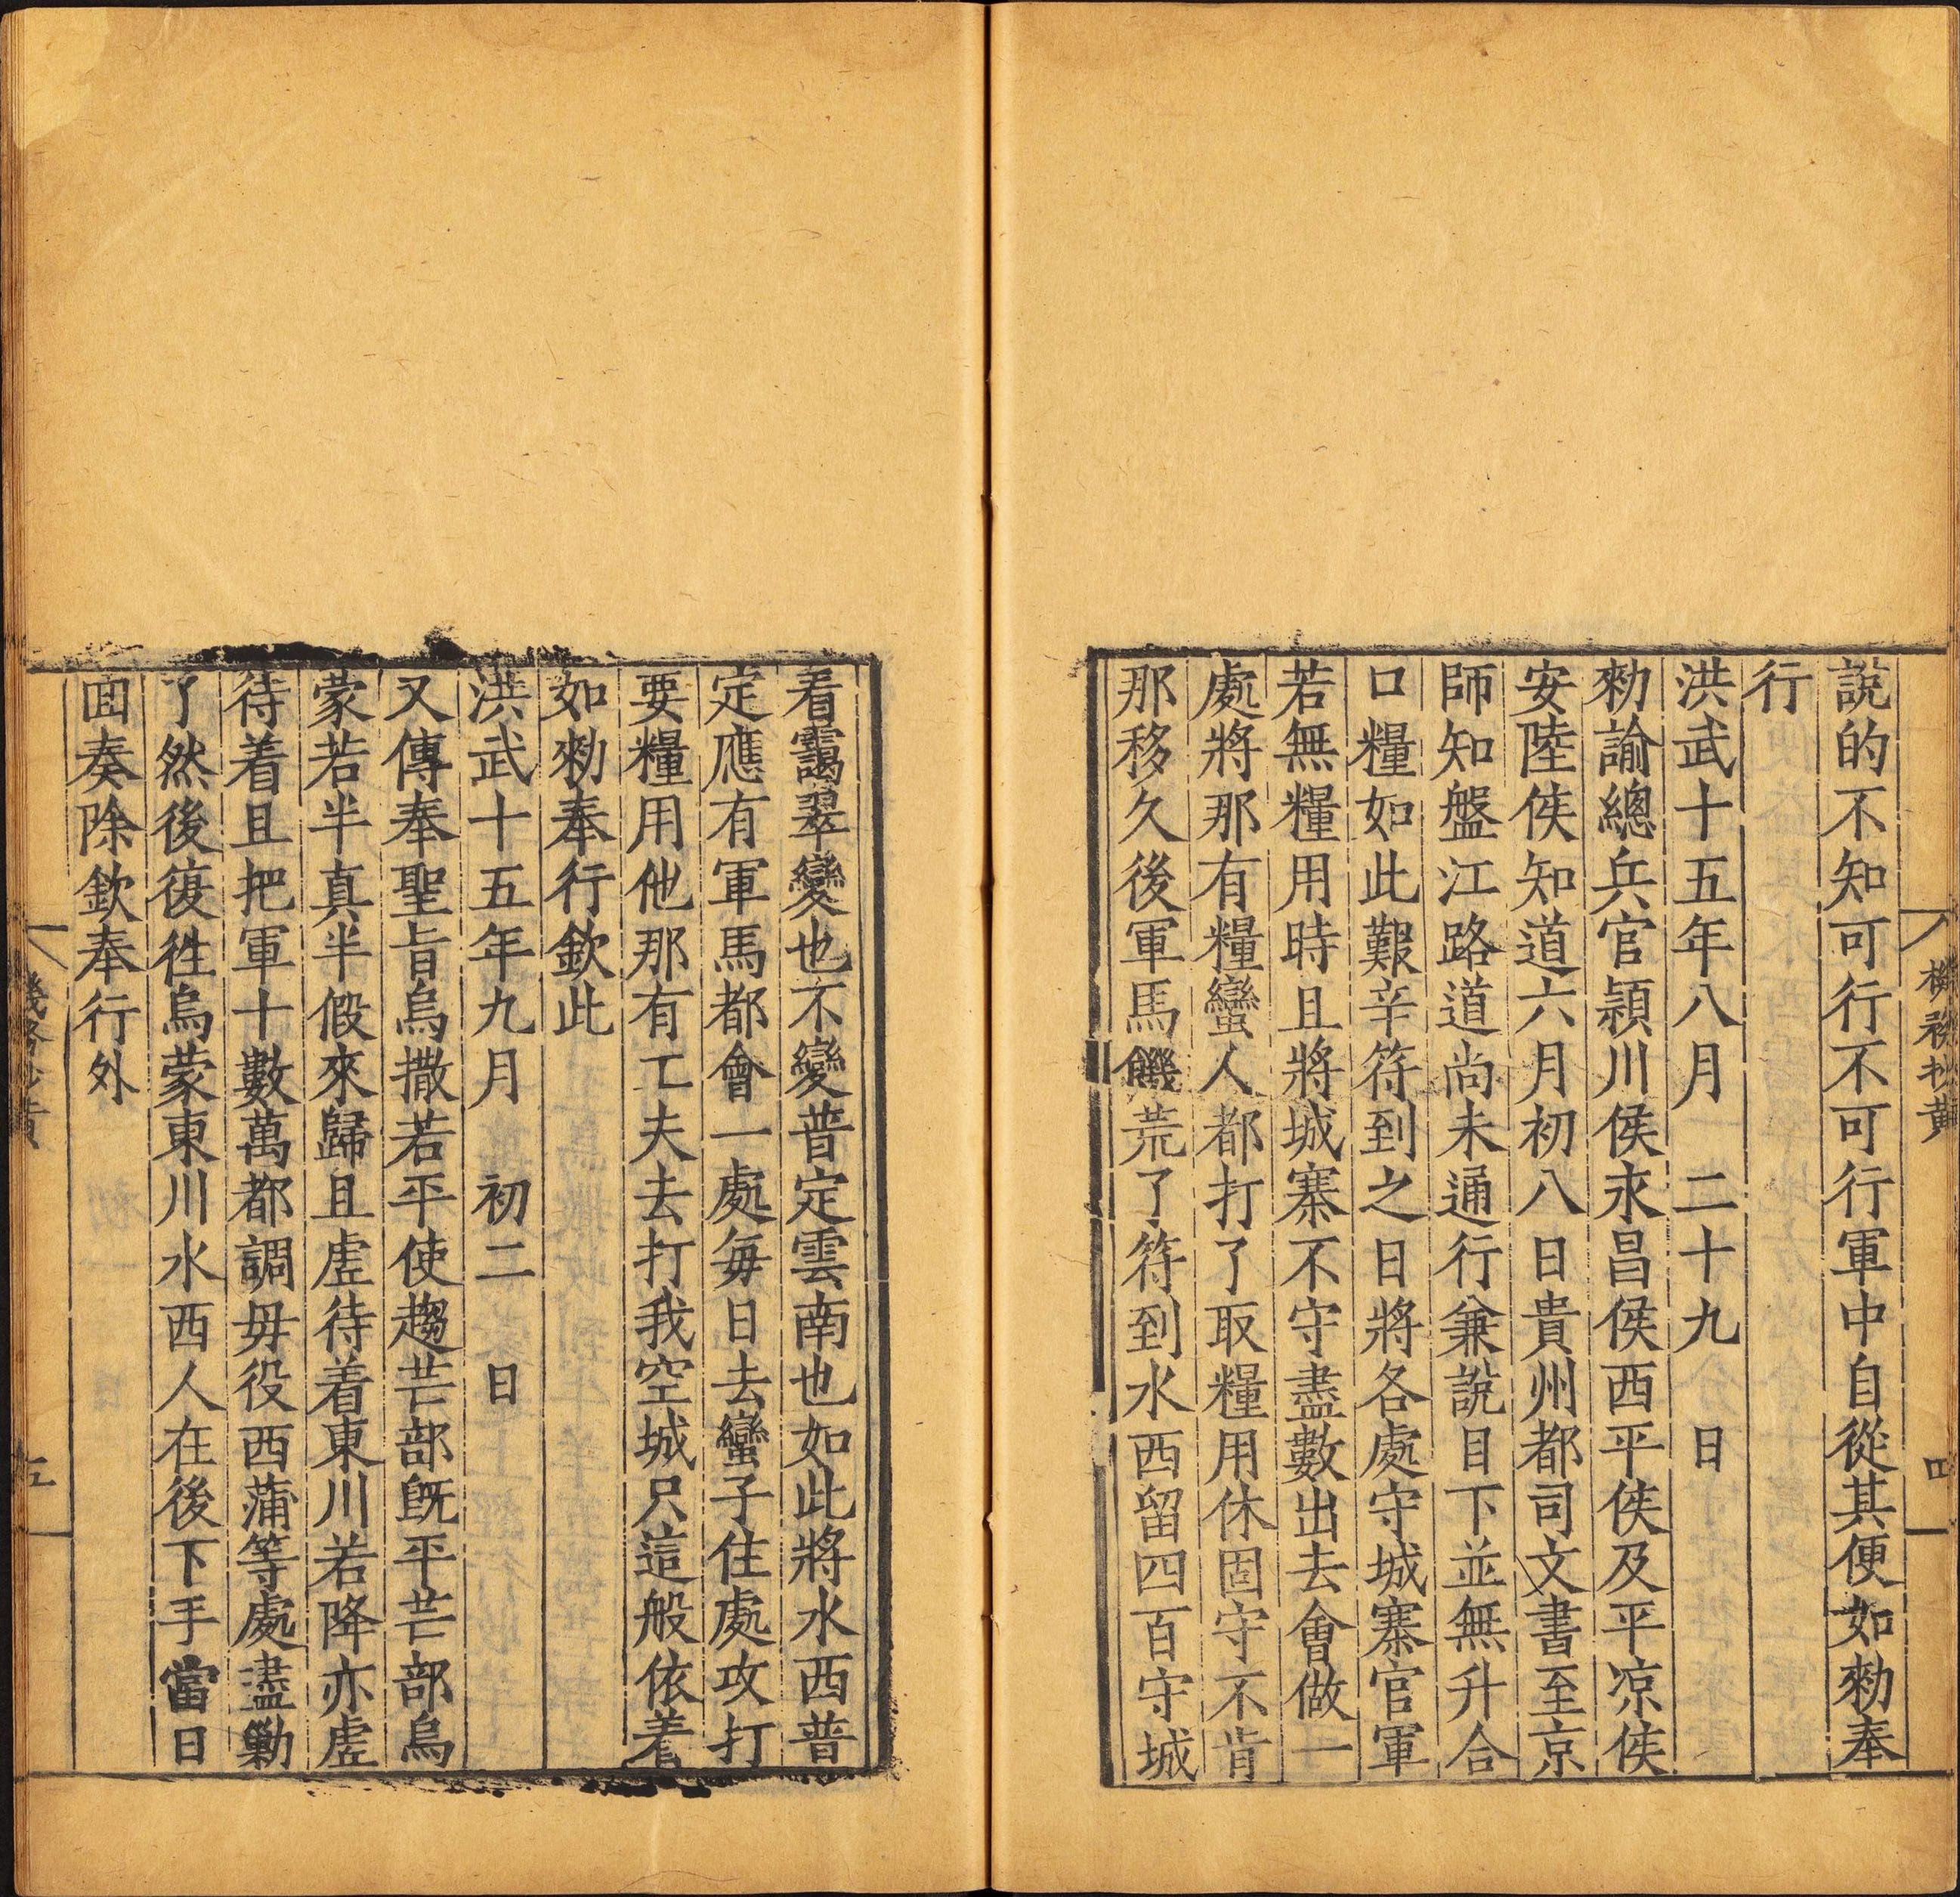 說的不知可行不可行軍中自從其便如勑奉
行
洪武十五年八月 二十九 日
勑諭總兵官潁川侯永昌侯西平侯及平凉侯
安陸侯知道六月初八日貴州都司文書至京
師知盤江路道尚未通行兼說目下並無升合
口糧如此艱辛符到之日將各處守城寨官軍
若無糧用時且將城寨不守盡數出去會做一
處將那有糧蠻人都打了取糧用休固守不肯
那移久後軍馬饑荒了符到水西留四百守城
機務抄黃
四
看靄翠變也不變普定雲南也如此將水西普
定應有軍馬都會一處每日去蠻子住處攻打
要糧用他那有工夫去打我空城只這般依着
如勑奉行欽此
洪武十五年九月 初二 日
又傳奉聖旨烏撒若平使趨芒部旣平芒部烏
蒙若半真半假來歸且虗待着東川若降亦虗
待着且把軍十數萬都調毋役西蒲等處盡勦
了然後復徃烏蒙東川水西人在後下手當日
囬奏除欽奉行外
五